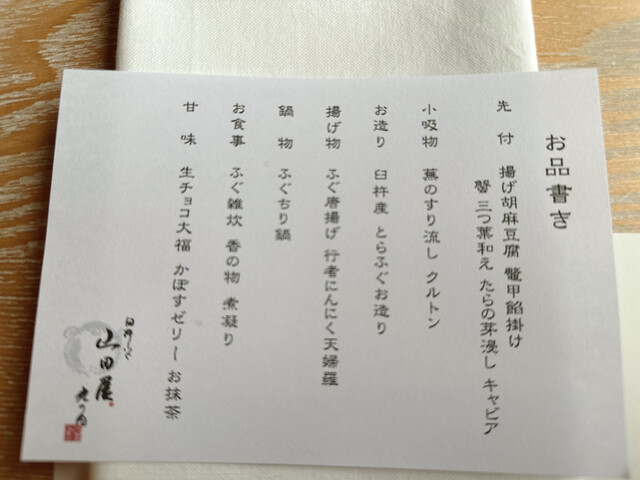 お品書き
先付 揚げ胡麻豆腐 鼈甲餡掛け
蟹 三つ葉和え たらの芽浸し キャビア
小吸物 蕪のすり流し クルトン
お造り 臼杵産 とらふぐお造り
揚げ物 ふぐ唐揚げ 行者にんにく天婦羅
鍋物 ふぐちり鍋
お食事 ふぐ雑炊 香の物 煮凝り
甘味 生チョコ大福 かぼすゼリー お抹茶
山田屋